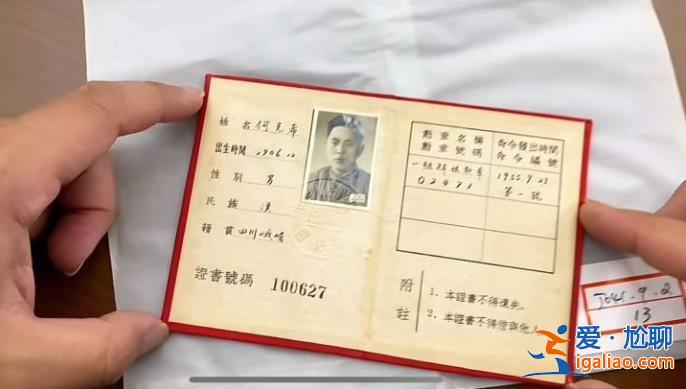 姓名 何克希
出生時間 1906.12
性别 男
民族 漢
籍貫 四川峨嵋
證書號碼 100627
勳章名稱
勳章號碼
命令發出時間
命令編號
一級解放勳章
02471
1955.9.23
第一號
附註
1. 本證書不得遺失.
2. 本證書不得借與他人
J041.9.2
13
爱·尬聊
www.igaliao.com